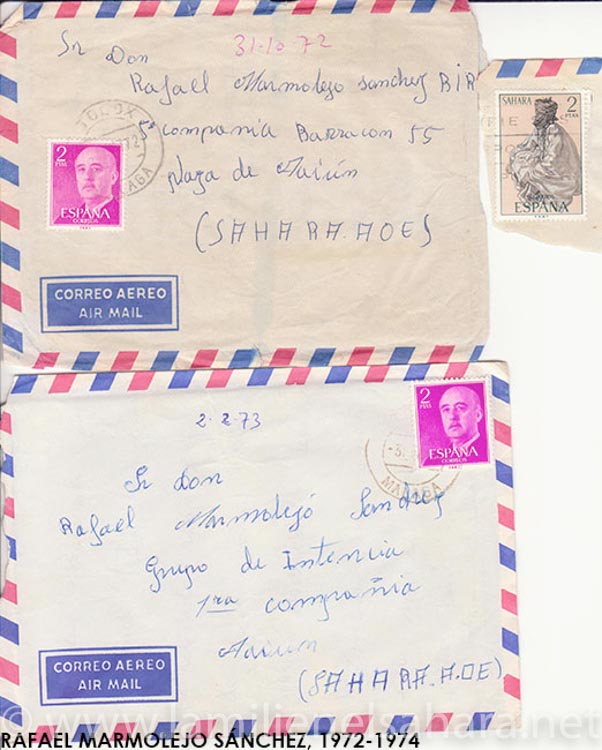 31-10-72
Sr Don
Rafael Marmolejo Sanchez BIR
5ª compania Barracon 55
plaza de Aaiún
(SAHARA.AOE)
2
PTAS
ESPAÑA
CORREOS
CORREO AEREO
AIR MAIL
SAHARA 2
PTAS
ESPAÑA
2-2-73
2
PTAS
ESPAÑA
CORREOS
MALAGA
Sr Don
Rafael Marmolejó Sandrez
Grupo de Intencia
1ra compañia
Aaiun
(SAHARA.AOE)
CORREO AEREO
AIR MAIL
© www.lamilienelsahara.net
RAFAEL MARMOLEJO SÁNCHEZ, 1972-1974